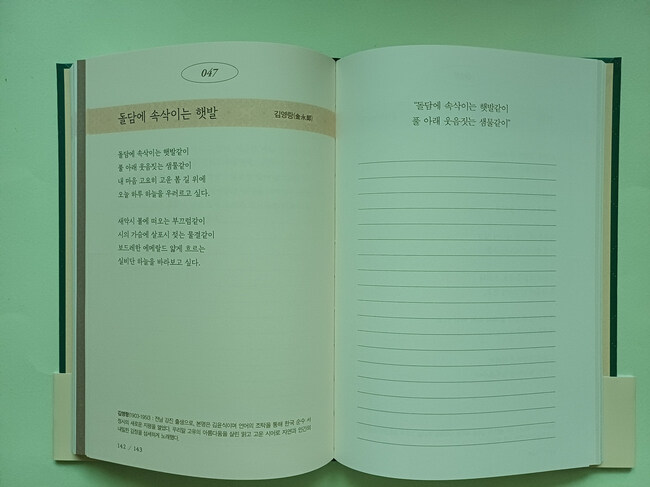 047
돌담에 속삭이는 햇발
김영랑(金永郞)
돌담에 속삭이는 햇발같이
풀 아래 웃음짓는 샘물같이
내 마음 고요히 고운 봄 길 위에
오늘 하루 하늘을 우러르고 싶다.
새악시 볼에 떠오는 부끄럼같이
시의 가슴에 살포시 젖는 물결같이
보드레한 에메랄드 얇게 흐르는
실비단 하늘을 바라보고 싶다.
김영랑(1903-1950) : 전남 강진 출생으로, 본명은 김윤식이며 언어의 조탁을 통해 한국 순수 서
정시의 새로운 지평을 열었다. 우리말 고유의 아름다움을 살린 맑고 고운 시어로 자연과 인간의
내밀한 감정을 섬세하게 노래했다.
142 / 143
"돌담에 속삭이는 햇발같이
풀 아래 웃음짓는 샘물같이"